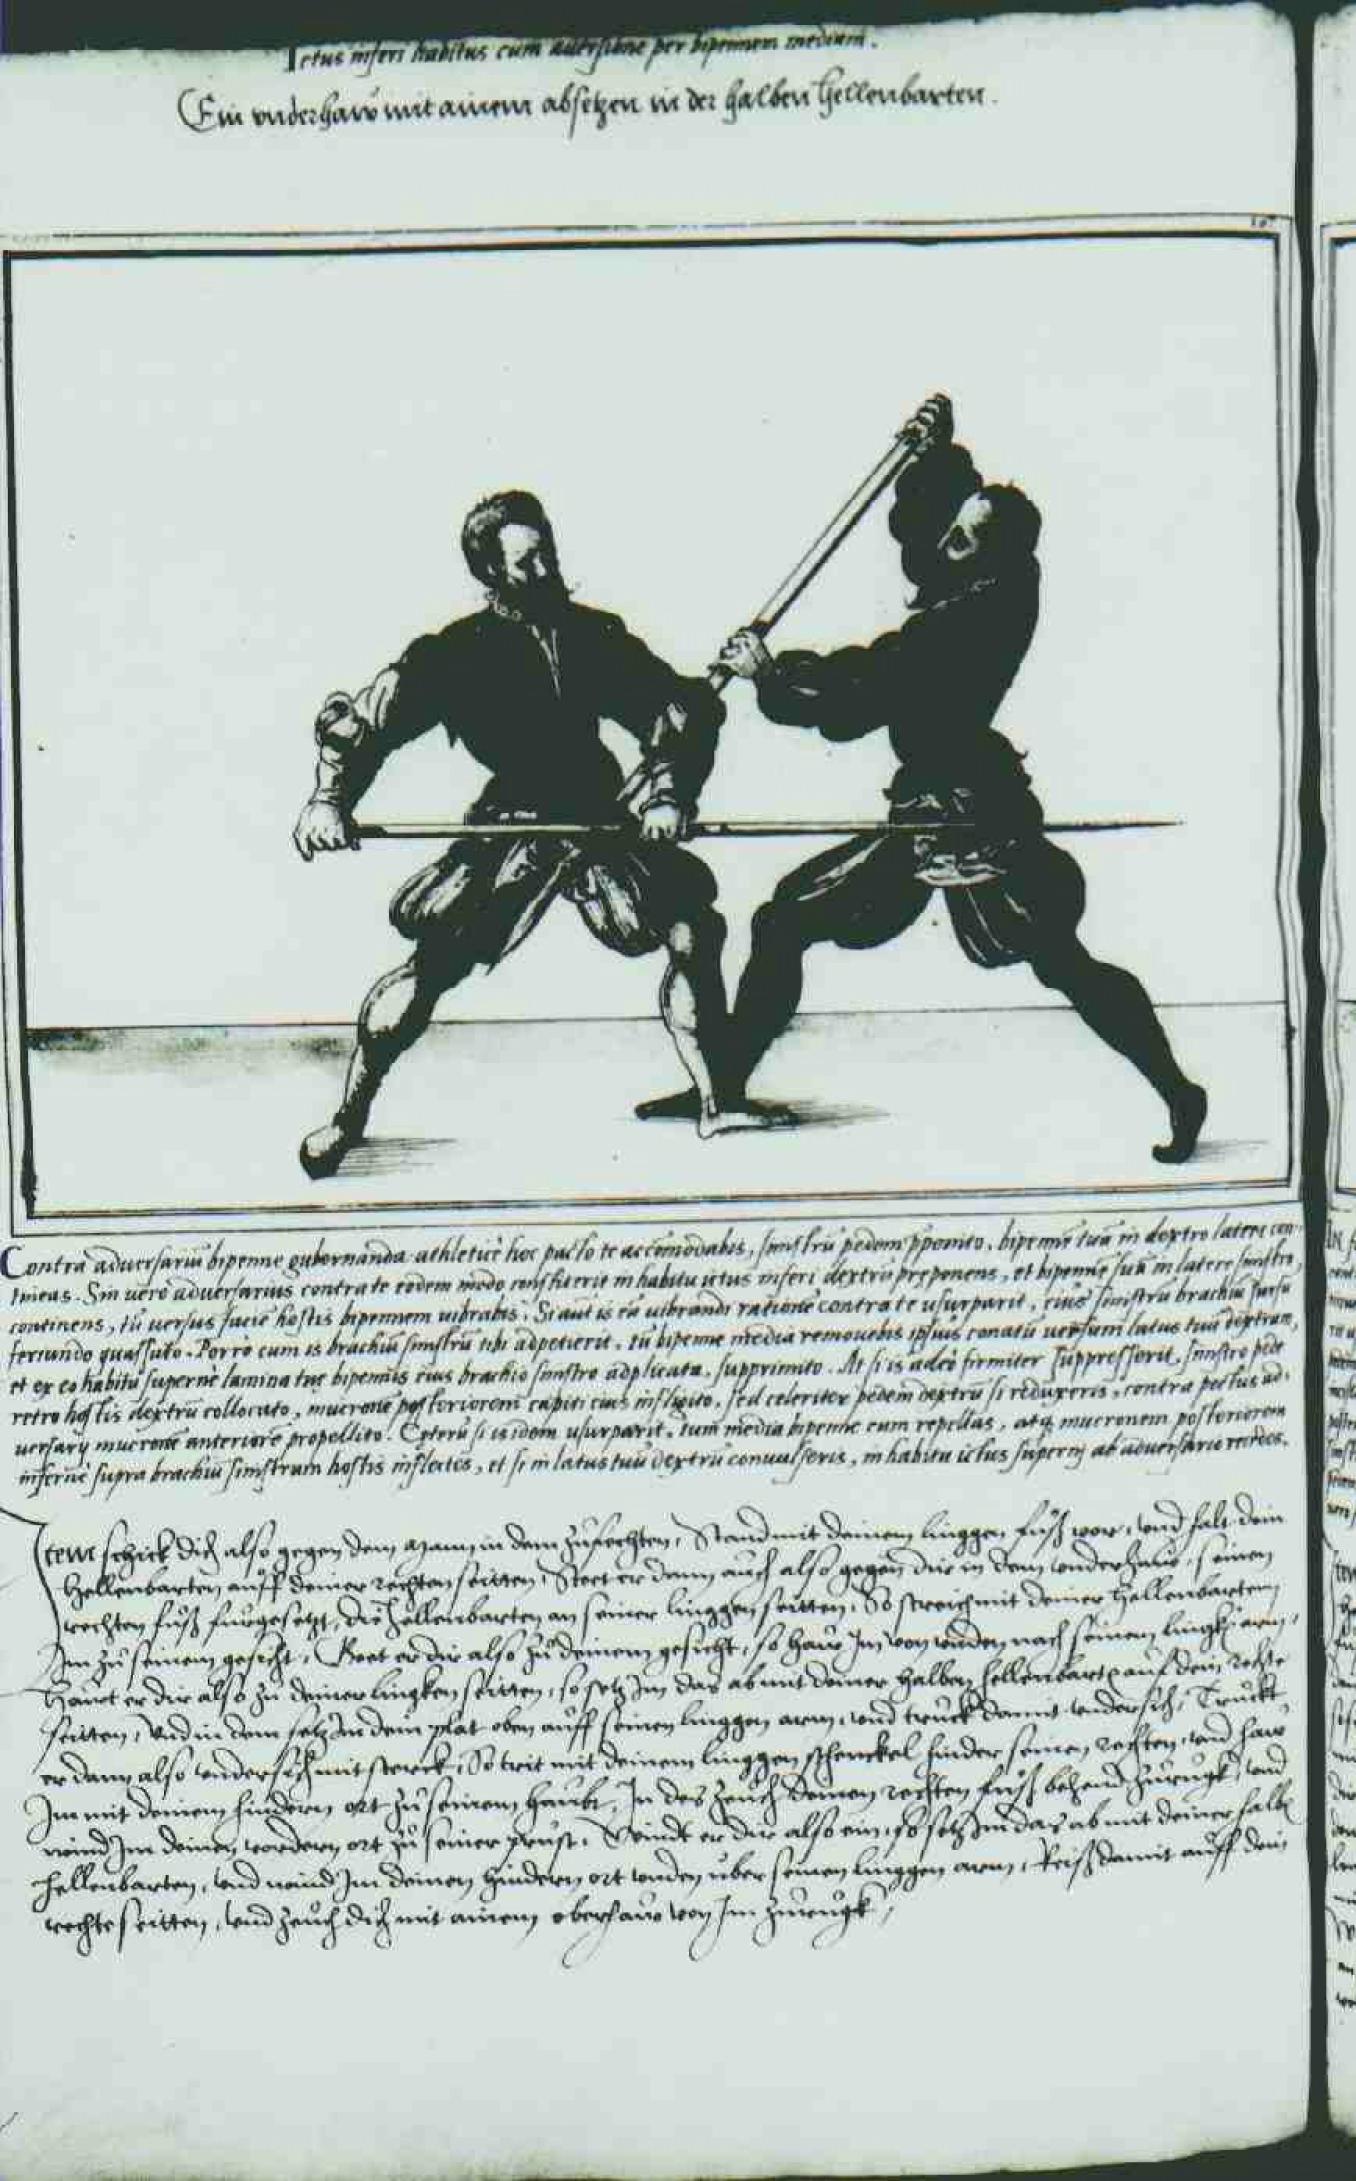 Ictus inferi habitus cum aversione per bipennem mediam.
Ein underhaw mit ainem absetzen in der halben hellenbarten.
Contra adversariũ bipenne gubernanda athleticè hoc pacto te accomodabis, sinistrũ pedem pponito, bipennẽ tuã in dextro latere con
tineas. Sin verò adversarius contra te eodem modo constiterit in habitu ictus inferi dextrũ preponens, et bipennẽ suã in latere sinistro
continens, tũ versus faciẽ hostis bipennem vibrabis. Si aut is eã vibrandi rationẽ contra te usurparit, eius sinistrũ brachiũ sursũ
feriundo quassato. Porrò cum is brachiũ sinistrũ tibi adpetierit, tũ bipenne media removebis ipsius conatũ versum latus tuũ dextrum,
et ex eo habitu supernè lamina tuę bipennis eius brachio sinistro adplicata, supprimito. At si is adeò firmiter suppresserit, sinistro pede
retro hostis dextrũ collocato, mucronẽ posteriorem capiti eius infligito, sed celeriter pedem dextrũ si reduxeris, contra pectus ad,
versarij mucronẽ anteriorẽ propellito. Cęterũ si is idem usurparit, tum media bipenne eum repellas, atq mucronem posteriorem
infernè supra brachiũ sinistrum hostis inflectes, et si in latus tuũ dextrũ convulseris, in habitu ictus superni ab adversario recedes.
Item schick dich also gegen dem Mann in dem zufechten, Stand mit deinem linggen fuß vor, und halt dein
hellenbarten auff deiner rechten seitten, Steet er dann auch also gegen dir in dem underhaw, seinen
rechten fuß furgesetzt, die hellenbarten an seiner linggen seitten, So streich mit deiner hellenbarten
Im zu seinem gesicht, Geet er dir also zu deinem gesicht, so haw Im von unden nach seinem lingkñ arm,
Hawt er dir also zu deiner lingken seitten, so setz Im das ab mit deiner halben hellenbartẽ auf dein rechte
seitten, und in dem setz Im dein plat oben auff seinen linggen arm, und truck damit undersich, Truckt
er dann also undersich mit sterck, So trit mit deinem linggen schenckel hinder seinen rechten, und haw
Im mit deinem hindern ort zu seinem haubt, In des zeuch deinen rechten fuß behend zurugk, und
wind Im deinen vordern ort zu seiner prust, Windt er dir also ein, so setz Im das ab mit deiner halbẽ
hellenbarten, und wind Im deinen hindern ort unden uber seinen linggen arm, Reiß damit auff dein
rechte seitten, und zeuch dich mit ainem oberhaw von Im zurugk,